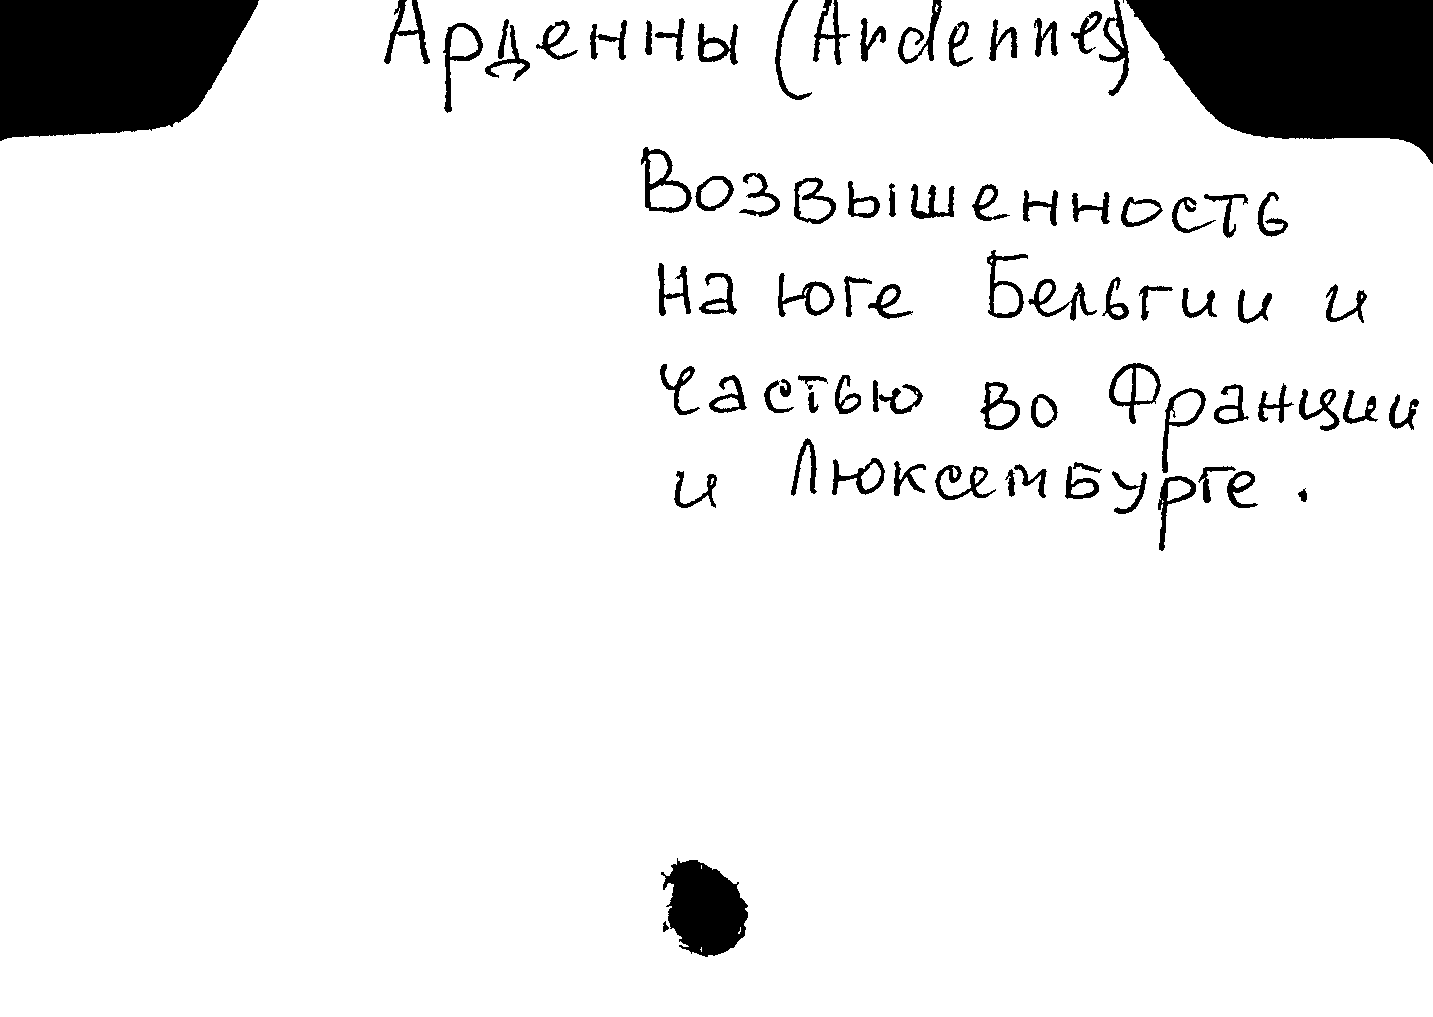 Арденны (Ardennes)
Возвышенность
на юге Бельгии и
частью во Франции
и Люксембурге.